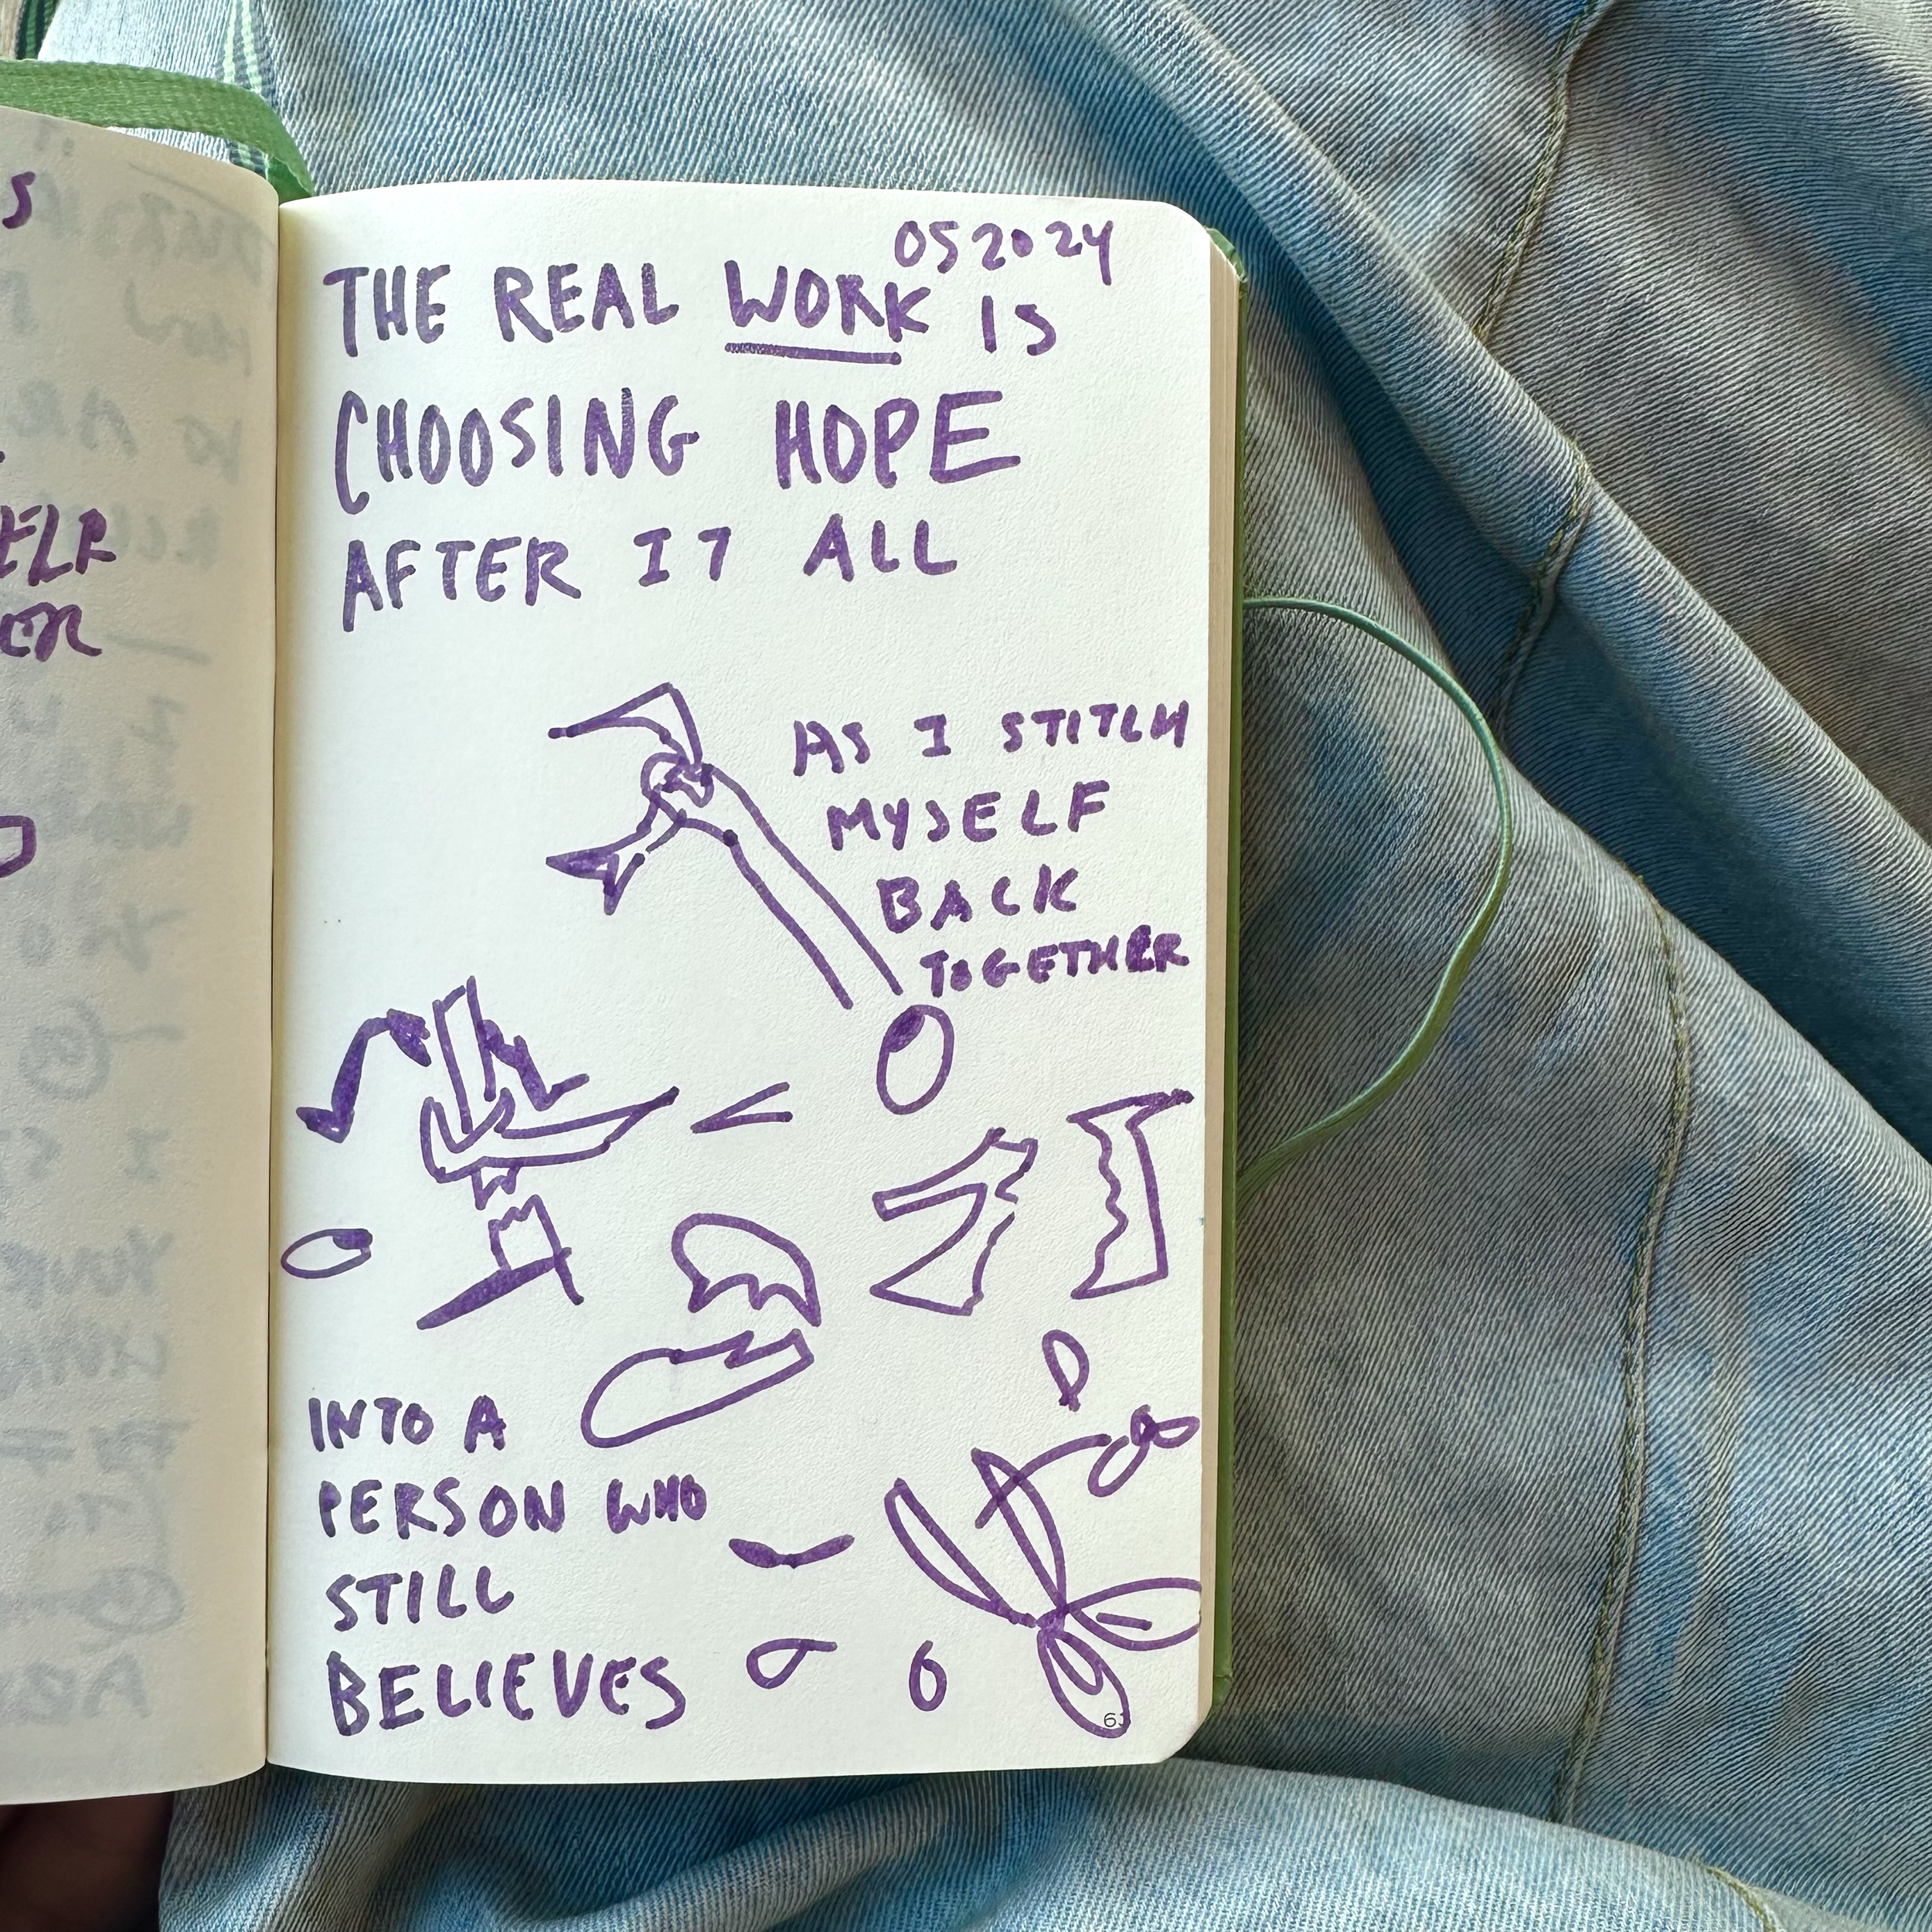 05 2024
THE REAL WORK IS
CHOOSING HOPE
AFTER IT ALL
AS I STITCH
MYSELF
BACK
TOGETHER
INTO A
PERSON WHO
STILL
BELIEVES